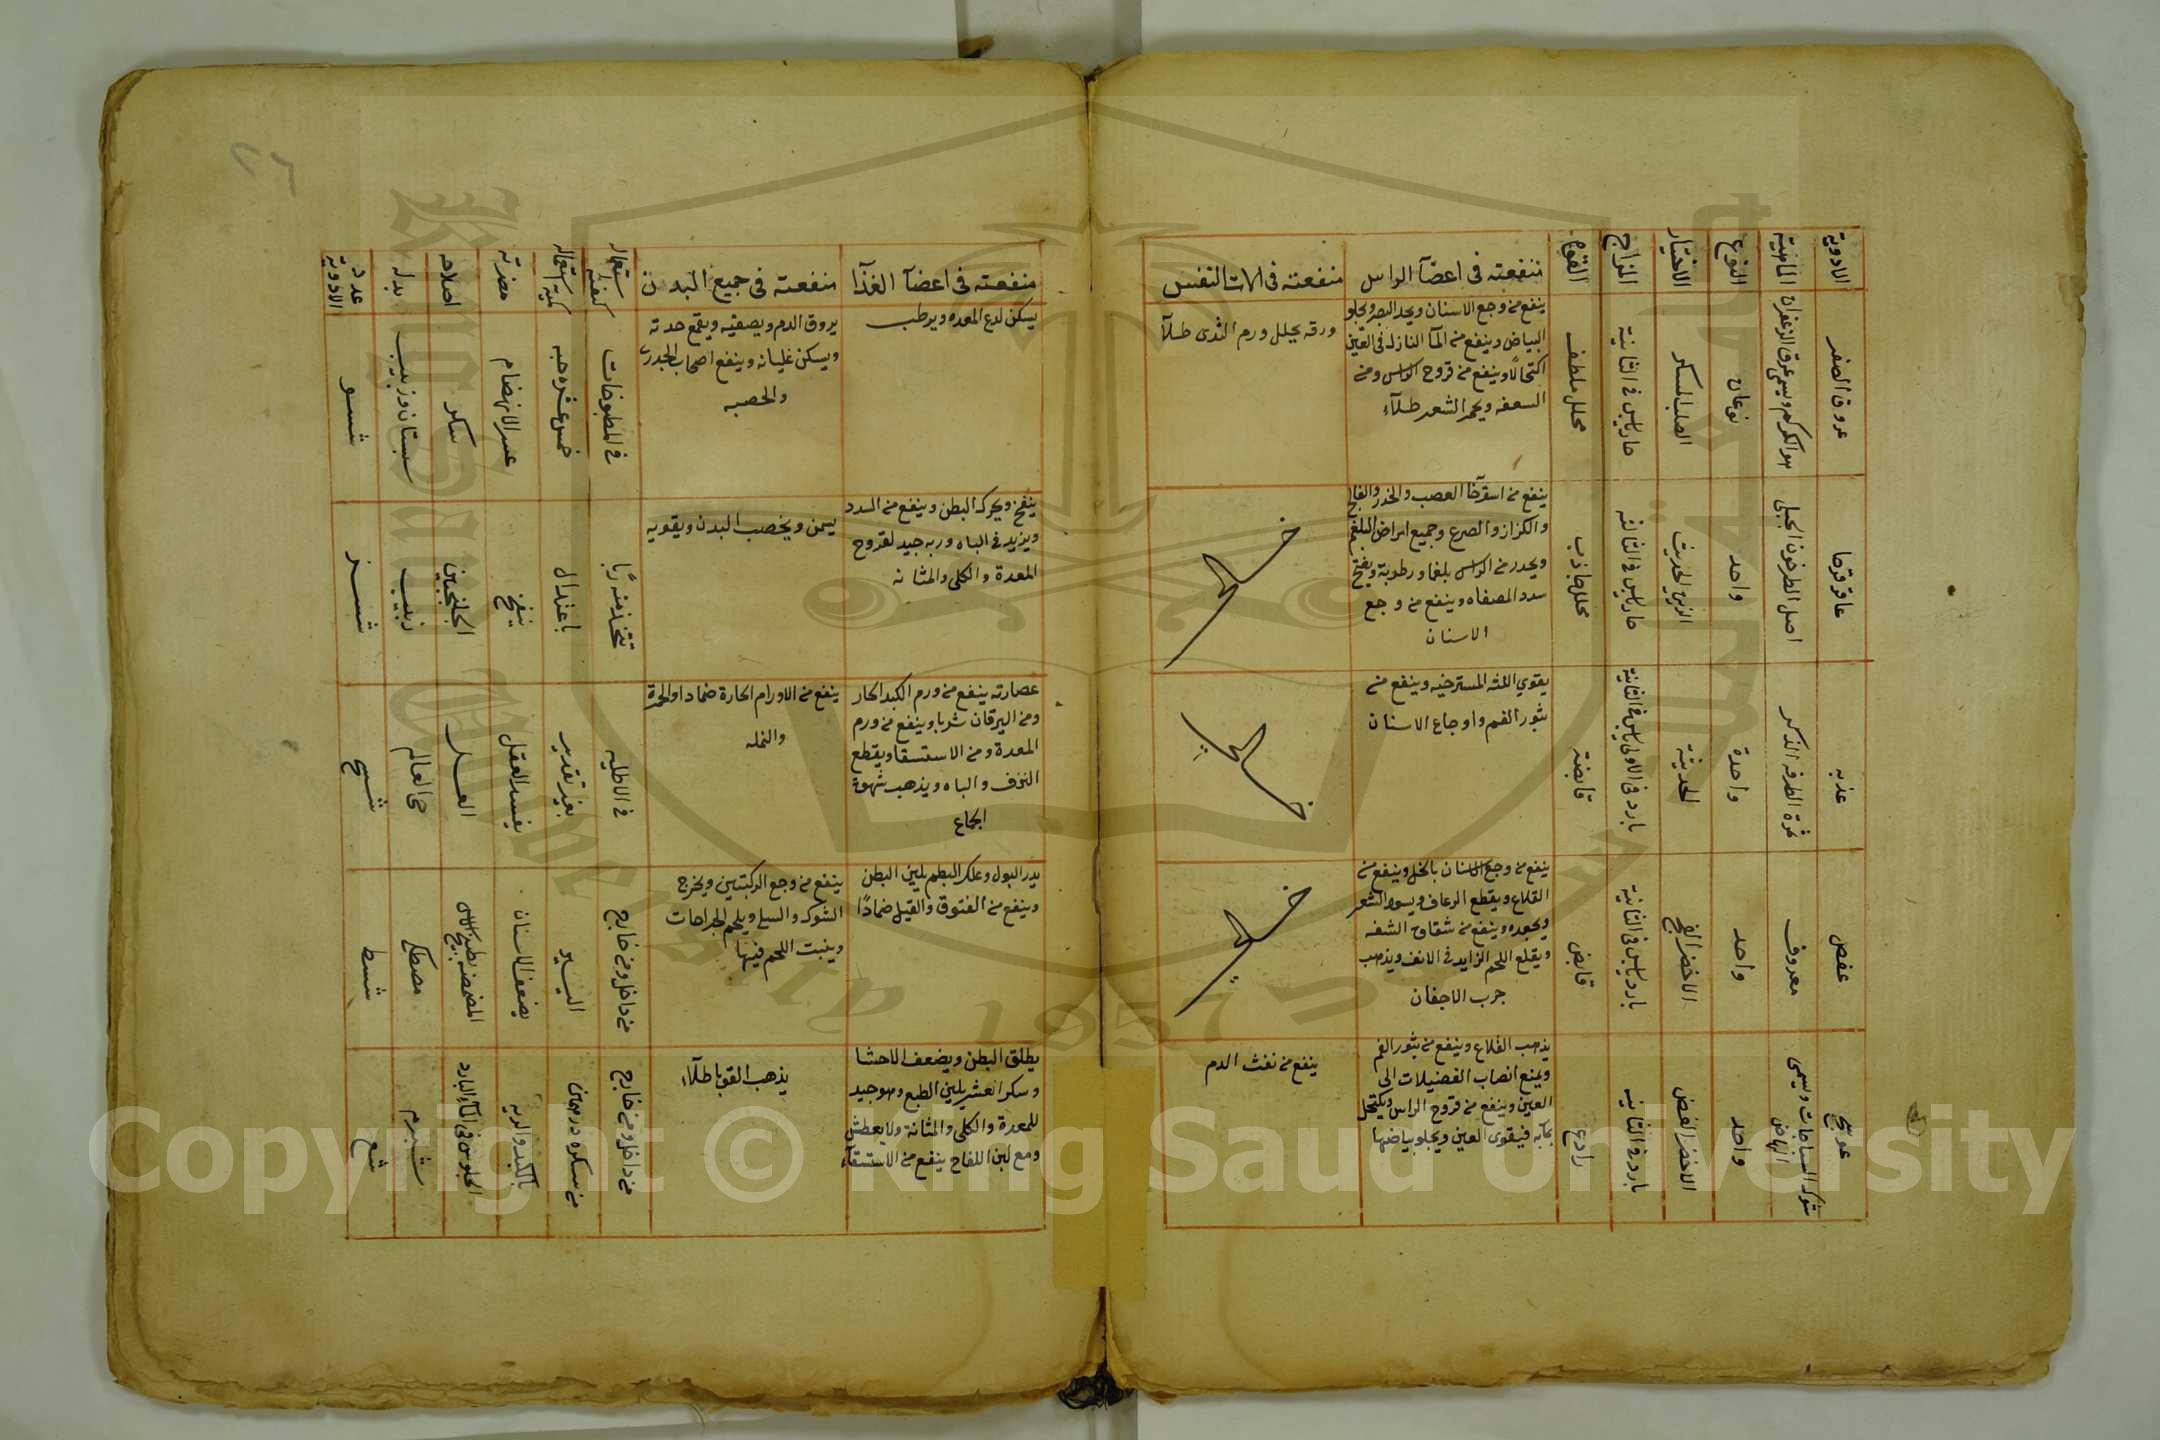 الادوية
الماهية
النوع
الاختيار
المزاج
القوة
منفعته في اعضآ الراس
منفعته في الات النفس
عروق الصفر
هو الكركم ويسمى عرق الزعفران
نوعان
الصلب المسكر
حار يابس في الثانية
محلل ملطف
ينفع من وجع الاسنان ويحد البصر ويجلو
البياض وينفع من المآ النازل في العين
اكتحالا وينفع من قروح الراس ومن
السعفه ويحمر الشعر طلآء
ورقه يحلل ورم الثدى طلآ
عاقرقرحا
اصل الطرخون الجبلى
واحد
الرزين الحريف
حار يابس في الثالثة
محلل جاذب
ينفع من استرخآ العصب والخدر والفالج
والكزاز والصرع وجميع امراض البلغم
ويحدر من الراس بلغما ورطوبة ويفتح
سدد المصفاه وينفع من وجع
الاسنان
خالي
عذبه
ثمرة الطرفه الذكر
واحدة
الحديثه
بارد في الاولى يابس في الثانية
قابضة
يقوي اللثه المسترخيه وينفع من
بثور الفم واوجاع الاسنان
خالي
عفص
معروف
واحد
الاخضر الفج
بارد يابس في الثانية
قابض
ينفع من وجع الاسنان بالخل وينفع من
القلاع ويقطع الرعاف ويسود الشعر
ويجعده وينفع من شقاق الشفه
ويقلع اللحم الزايد في الانف ويذهب
جرب الاجفان
خالي
عوسج
شوك السياجات ويسمى
واحد
الاخضر الغض
بارد في الثانيه
رادع
يذهب القلاع وينفع من بثور الفم
ويمنع انصاب الفضيلات الى
العين وينفع من قروح الراس ويكتحل
بمآيه فيقوى العين ويجلو بياضها
ينفع من نفث الدم
٢٦
منفعته في اعضآ الغذآ
منفعته في جميع البدن
كيفية استعماله
كمية استعماله
مضرته
اصلاحه
بدله
عدد الادوية
يسكن لدع المعده ويرطب
يروق الدم ويصفيه ويقمع حدته
ويسكن غليانه وينفع اصحاب الجدرى
والحصبه
في المطبوخات
خمس عشره حبه
عسر الانهضام
سكر
سبستان وزبيب
شسو
ينفخ ويحرك البطن وينفع من السدد
ويزيد في الباه وربه جيد لقروح
المعدة والكلى والمثانه
يسمن ويخصب البدن ويقويه
تتخذ منه ربا
باعتدال
ينفخ
الجلنجبين
زبيب
شسز
عصارته ينفع من ورم الكبد الحار
ومن اليرقان شربا وينفع من ورم
المعدة ومن الاستسقا ويقطع
النزف والباه ويذهب شهوة
الجماع
ينفع من الاورام الحارة ضمادا والحمرة
والنمله
في الاطليه
بغير تقدير
يفسد العقل
العسل
حى العالم
شسح
يدر البول وعلك البطم يلين البطن
وينفع من الفتوق والقيل ضمادًا
ينفع من وجع الركبتين ويخرج
الشوك والسلى ويلحم الجراحات
وينبت اللحم فيها
من داخل ومن خارج
اليسير
يضعف الاسنان
مصطكى
شسط
يطلق البطن ويضعف الاحشا
وسكر العشر يلين الطبع وهو جيد
للمعدة والكلى والمثانة ولا يعطش
ومع لبن اللقاح ينفع من الاستسقآ
يذهب القوبا طلآء
من داخل ومن خارج
من سكره درهمان
بالكبد والريه
الجلوس في المآ البارد
شبرم
شع
Copyright © King Saud University
King Saud University
1957